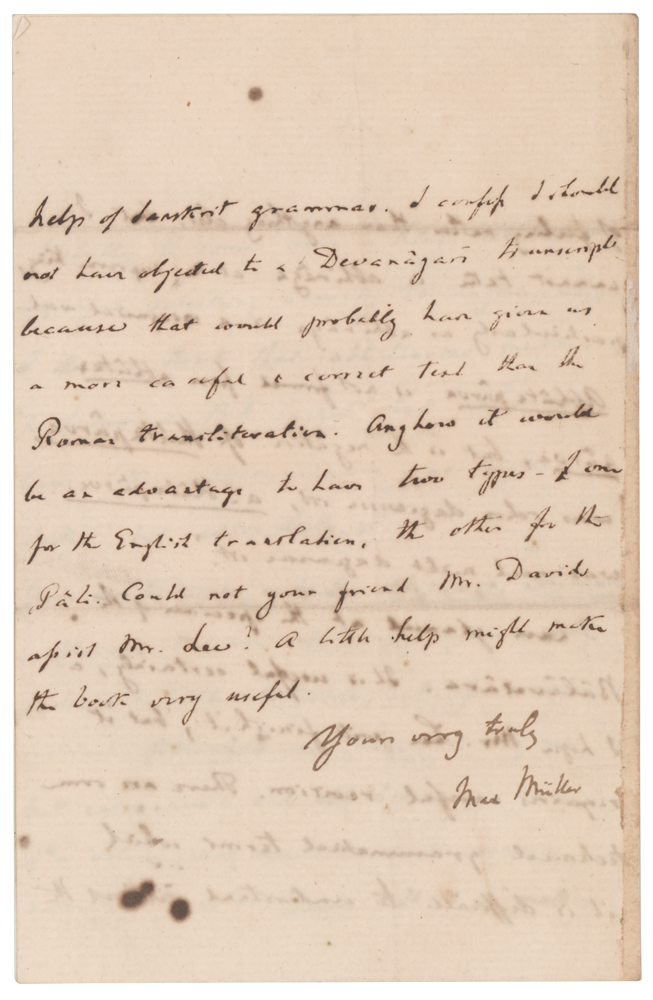 help of Sanskrit grammar. I confess I should
not have objected to a Devanâgarî transcript
because that would probably have given us
a more careful & correct text than the
Roman transliteration. Anyhow it would
be an advantage to have two types - one
for the English translation, the other for the
Pâli. Could not your friend Mr. David
assist Mr. Lee? A little help might make
the book very useful.
Yours very truly
Max Müller